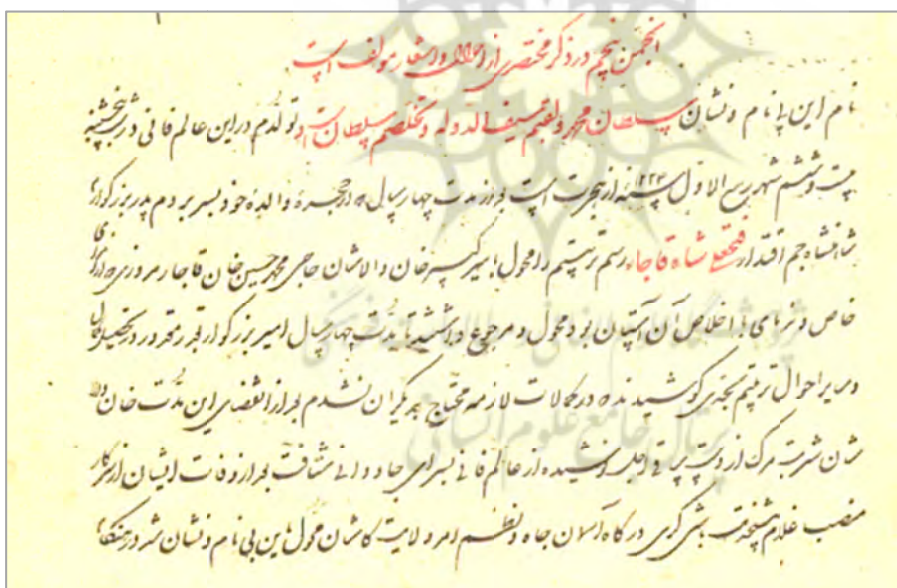 انجمن پنجم در ذکر مختصری از احوال و اشعار مولف است
نام این با نام و نشان سلطان محمد و لقبم سیف الدوله و تخلصم سلطان است و تولدم در این عالم فانی در شب پنجشنبه
بیست و ششم شهر ربیع الاول سنه ۱۲۲۸ از هجرت است بعد از مدت چهار سال که در حجره والده خود بسر بردم پدر بزرگوار
شاهنشاه جم اقتدار فتحعلی شاه قاجار رسم تربیتم را محول بامیر کبیر خان والاشان حاجی محمد حسین خان قاجار مروزی که از
خاص و اخلاص آن آستان بود محول و مرجوع داشتند تا مدت چهار سال امیر بزرگوار بقدر مقدور در تحصیل
و سایر احوال تربیتم بجد کوشیدند که در کمالات لازمه محتاج بدیگران نشدم بعد از انقضای این مدت خان
شان شربت مرگ از دست اجل نوشیده از عالم فانی بسرای جاودانی شتافت بعد از وفات ایشان از سرکار
منصب غلام پیشخدمت باشی گری درگاه آسمان جاه و نظم امر ولایت کاشان محول باین بی نام و نشان شد
پژوهشگاه علوم انسانی و مطالعات فرهنگی
پرتال جامع علوم انسانی